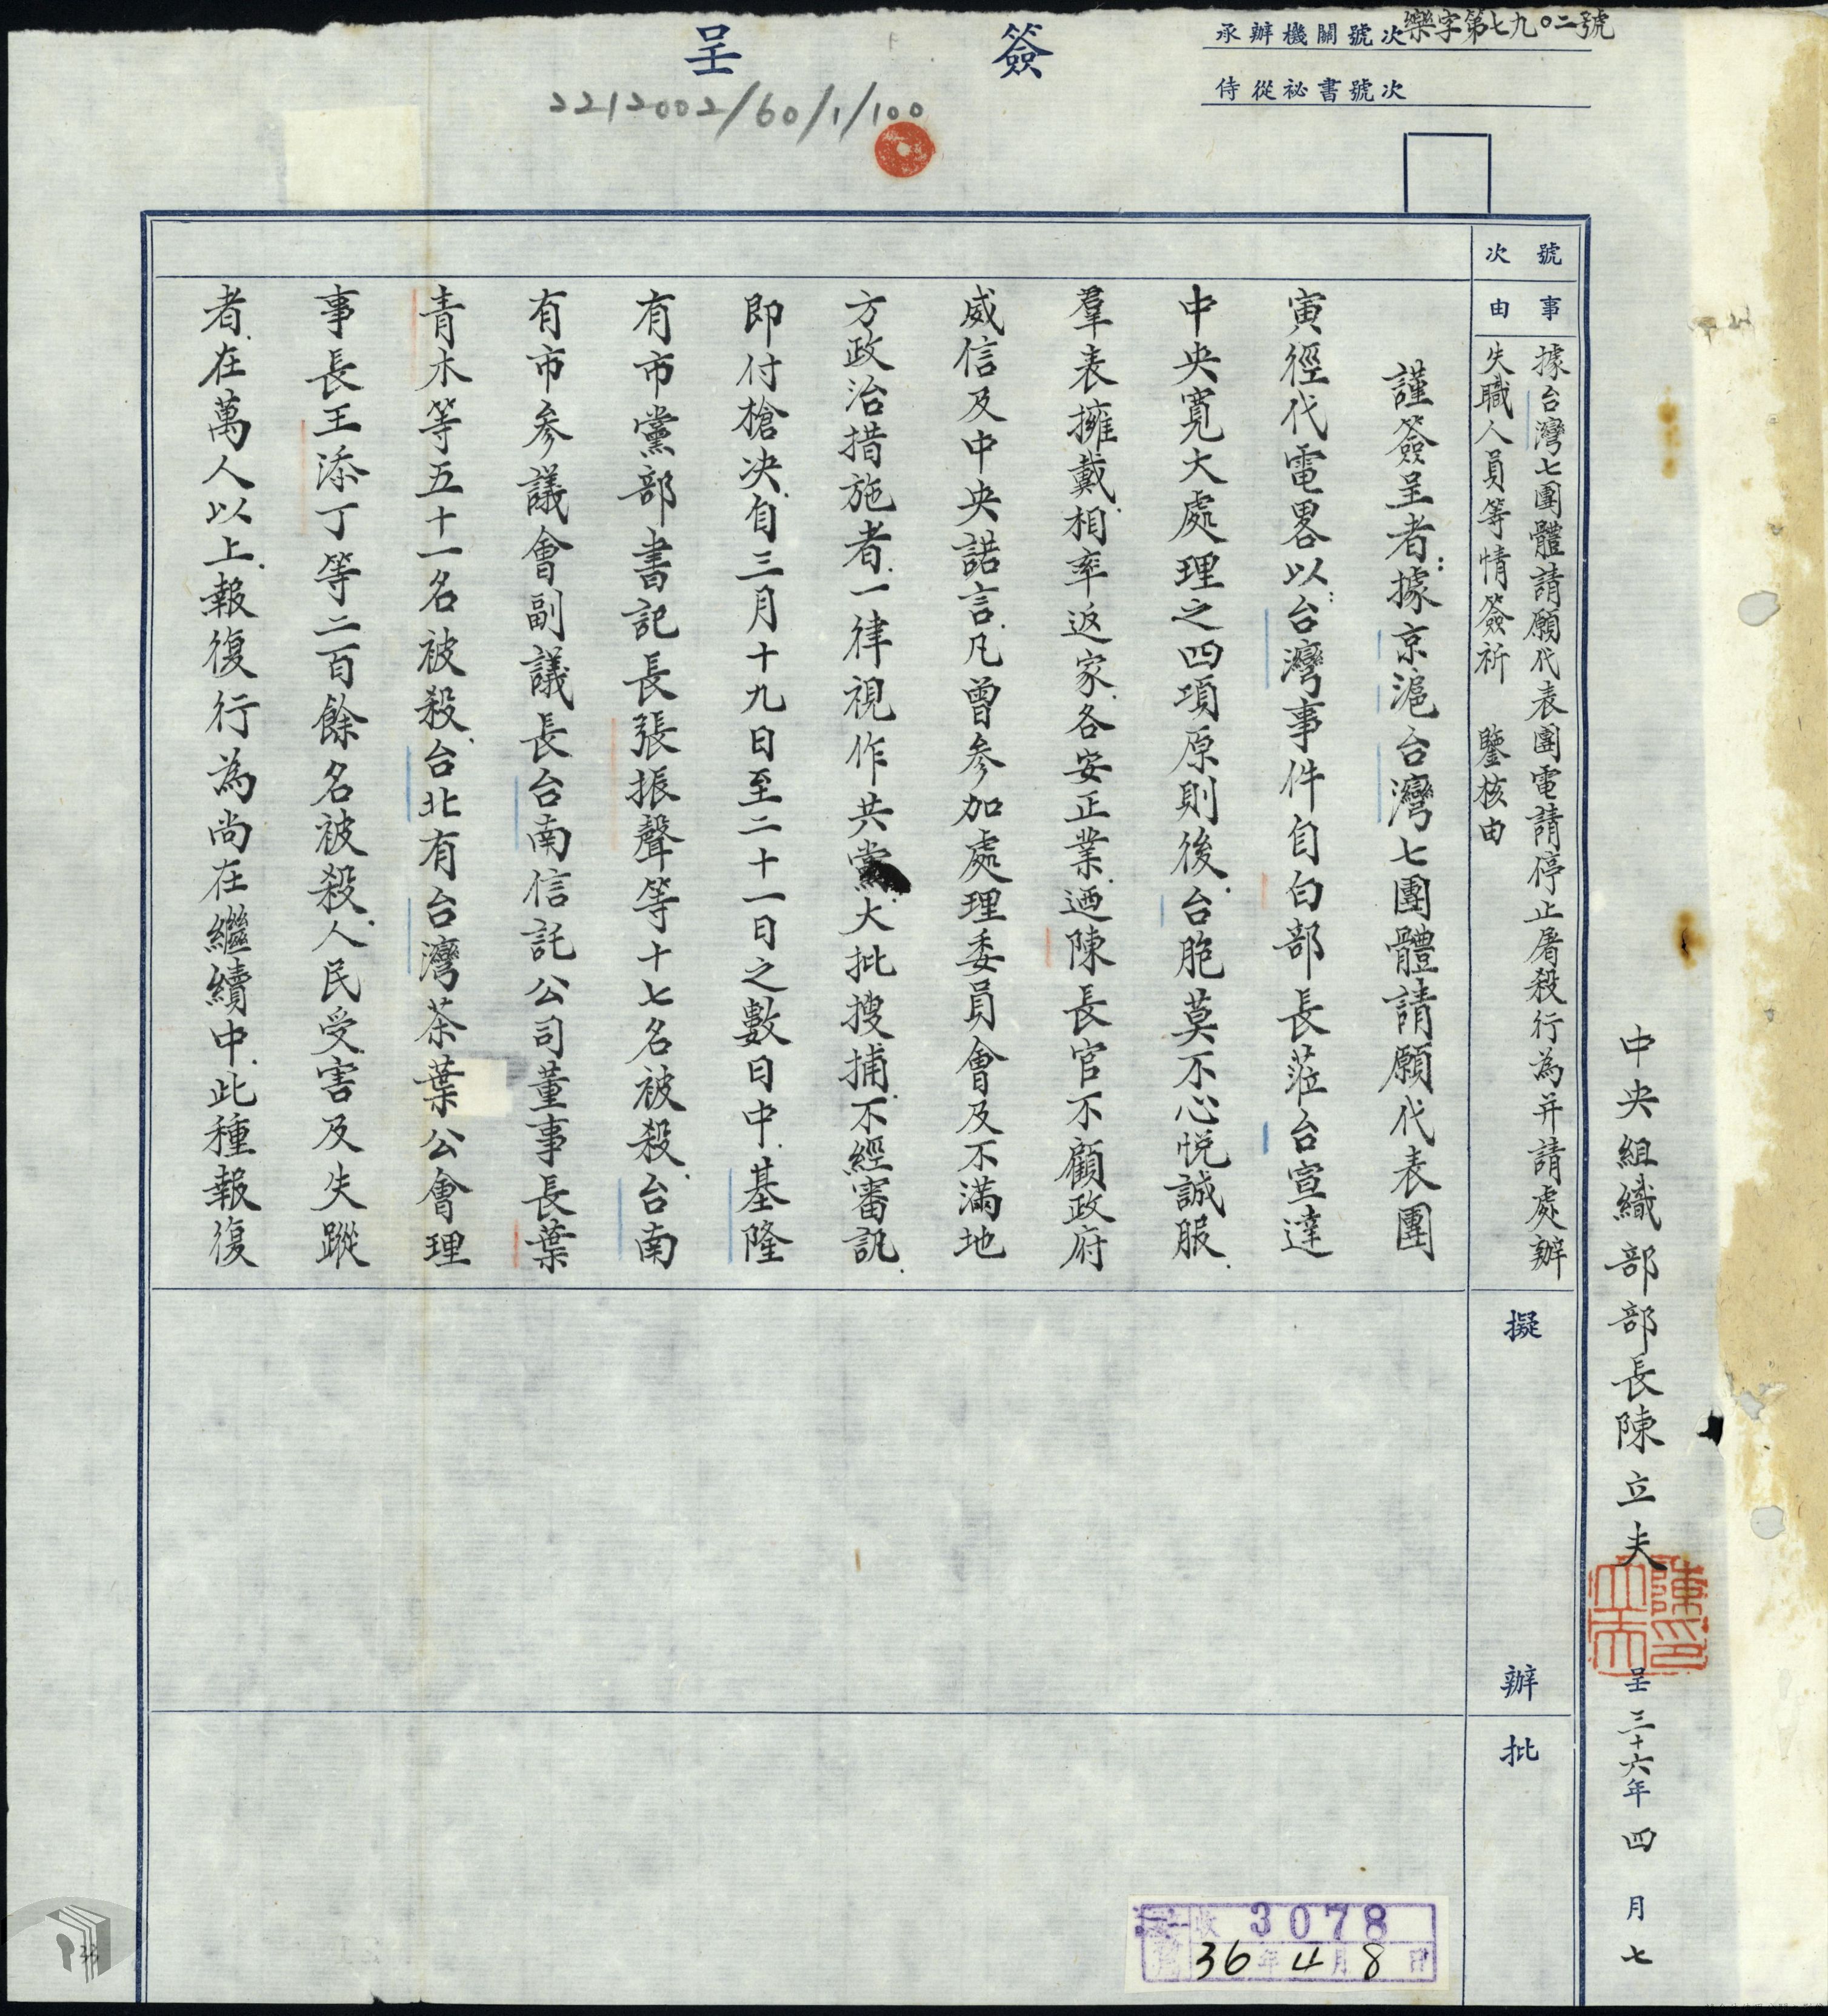 簽呈
承辦機關號次樂字第七九〇二號
侍從祕書號次
2212002/60/1/100
中央組織部部長陳立夫呈三十六年四月七
號次
事由
據台灣七團體請願代表團電請停止屠殺行為并請處辦
失職人員等情簽祈 鑒核由
謹簽呈者:據京滬台灣七團體請願代表團
寅徑代電畧以:台灣事件自白部長蒞台宣達
中央寬大處理之四項原則後.台胞莫不心悅誠服.
羣表擁戴.相率返家.各安正業.迺陳長官不顧政府
威信及中央諾言.凡曾參加處理委員會及不滿地
方政治措施者.一律視作共黨.大批搜捕.不經審訊.
即付槍決.自三月十九日至二十一日之數日中.基隆
有市黨部書記長張振聲等十七名被殺.台南
有市參議會副議長台南信託公司董事長葉
青木等五十一名被殺.台北有台灣茶葉公會理
事長王添丁等二百餘名被殺.人民受害及失蹤
者.在萬人以上.報復行為尚在繼續中.此種報復
擬辦
批
陳立夫印
收 3078
36年4月8日